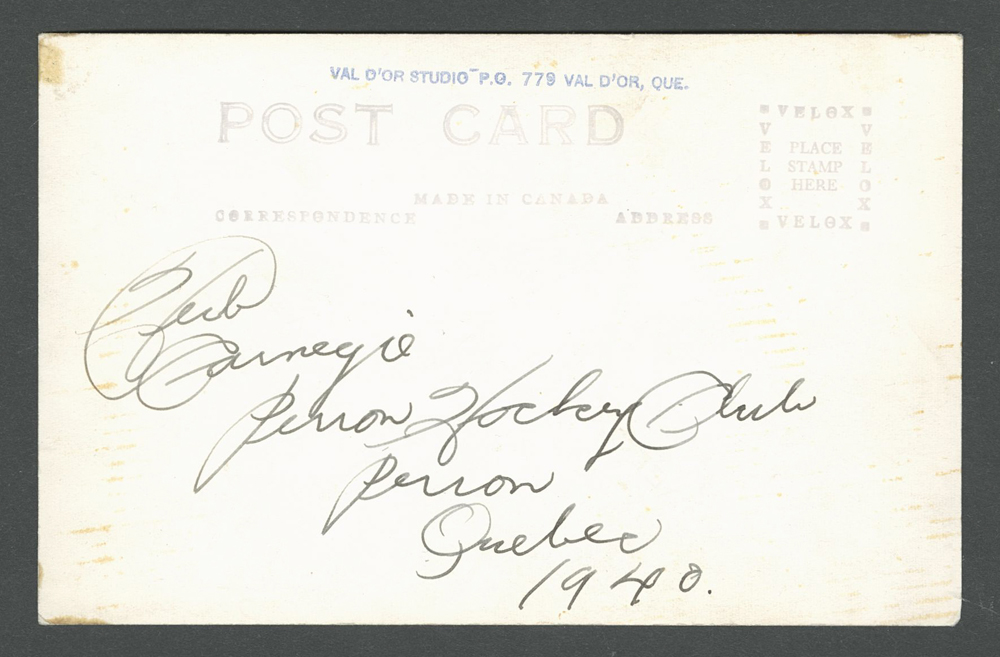 VAL D'OR STUDIO P.O. 779 VAL D'OR, QUE.
POST CARD
VELOX
VELOX
VELOX
PLACE
STAMP
HERE
VELOX
MADE IN CANADA
CORRESPONDENCE
ADDRESS
Herb
Carnegie
Perron Hockey Club
Perron
Quebec
1940.